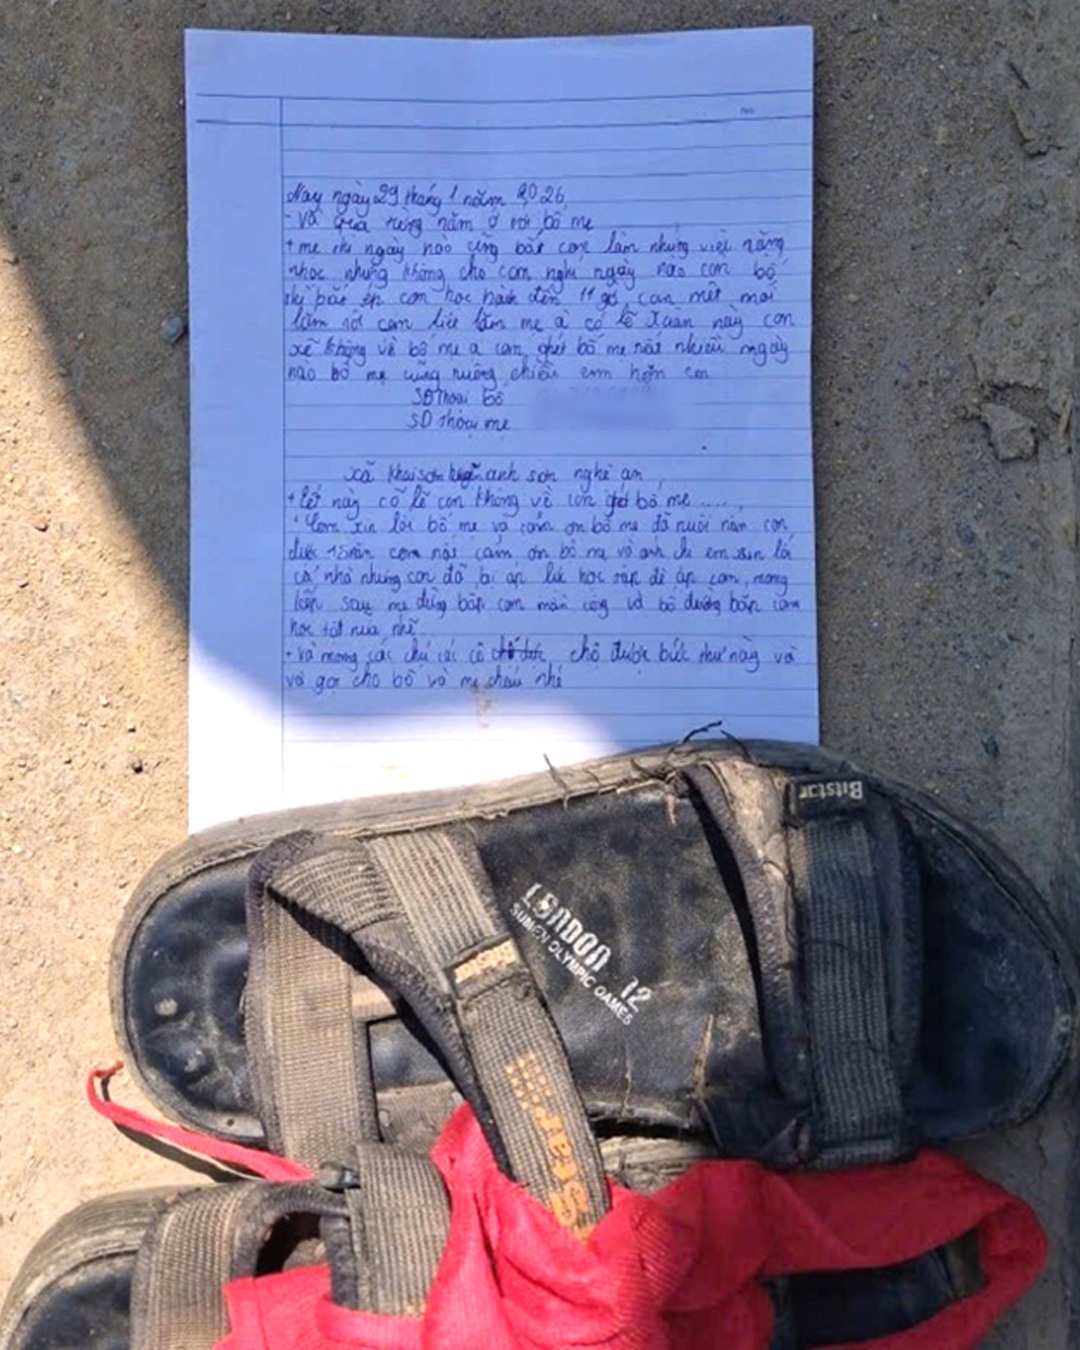 Nay ngày 29 tháng 1 năm 2026,
- Và qua từng năm ở với bố mẹ
+ mẹ thì ngày nào cũng bắt con làm những việc nặng
nhọc nhưng không cho con nghỉ ngày nào con bố
thì bắt ép con học hành đến 11 giờ, con mệt mỏi
lắm rồi con tiết lắm mẹ ạ có lẽ Xuân này con
xẽ không về bố mẹ ạ con ghét bố mẹ rất nhiều ngày
nào bố mẹ cũng nuông chiều em hơn con
SĐThoại bố
SD Thoại mẹ
xã khai sơn huyện anh sơn nghệ an
+ tết này có lẽ con không về con ghét bố mẹ .....,
Con xin lỗi bố mẹ và cảm ơn bố mẹ đã nuôi nấn con
được con rất cảm ơn bố mẹ và anh chị em xin lỗi
cả nhà nhưng con đã bị áp lức học tập đè áp con, mong
kiếp sau mẹ đừng bắt con mần công và bố đường bắt con
học tốt nữa nhé
+ Và mong các chú các cô chỗ được bức thư này và
và gọi cho bố và mẹ cháu nhé
Bitstar
LONDON 12
SUMEN OLYMPIC GAMES